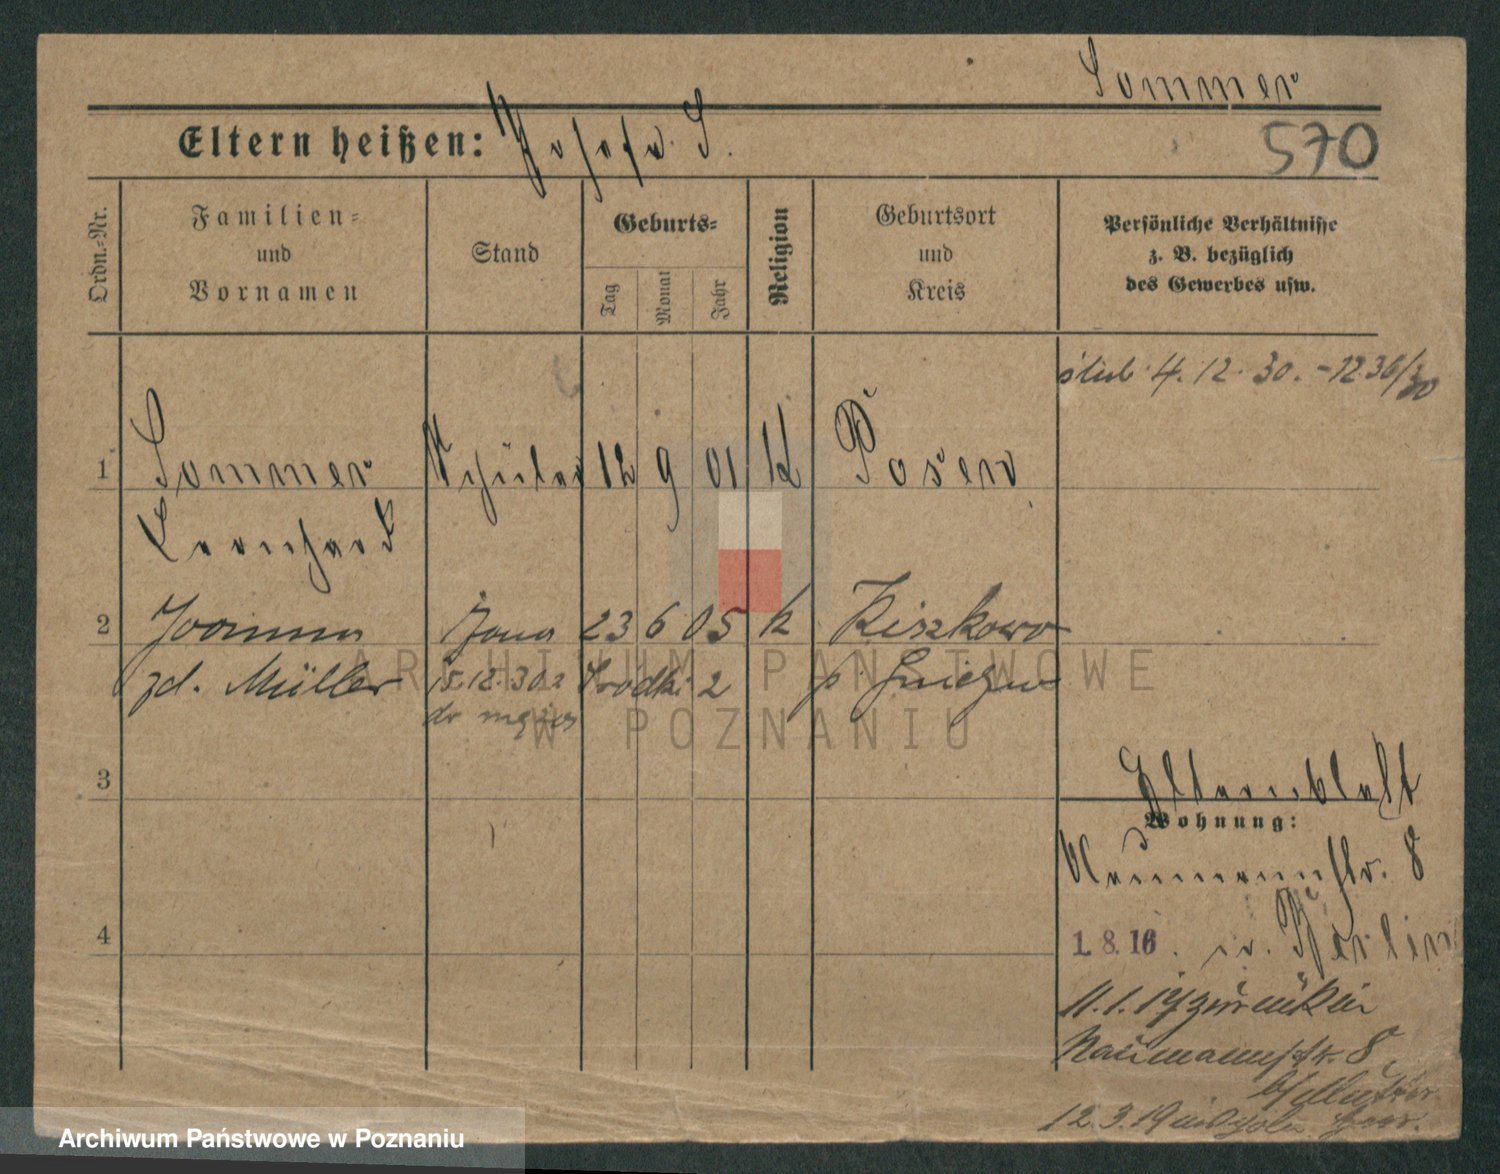 Sommer
Eltern heißen: Josef S.
570
Ordn.-Nr.
Familien-
und
Vornamen
Stand
Geburts-
Tag
Monat
Jahr
Religion
Geburtsort
und
Kreis
Persönliche Verhältnisse
z. B. bezüglich
des Gewerbes usw.
ślub 4.12.30. - 1236/30
1 Sommer Schüler 12 9 01 K Posen
Leonhard
2 Joanna żona 23 6 05 K Kiszkowo
zd. Müller 15.12.30 z Wodki 2 p. Gniezno
3
4
Elternblatt
Wohnung:
Naumannstr. 8
1.8.16. in Berlin
11.1.19 zurück in
Naumannstr. 8
b/Mutter
12.3.19
ARCHIWUM PAŃSTWOWE
W POZNANIU
Archiwum Państwowe w Poznaniu